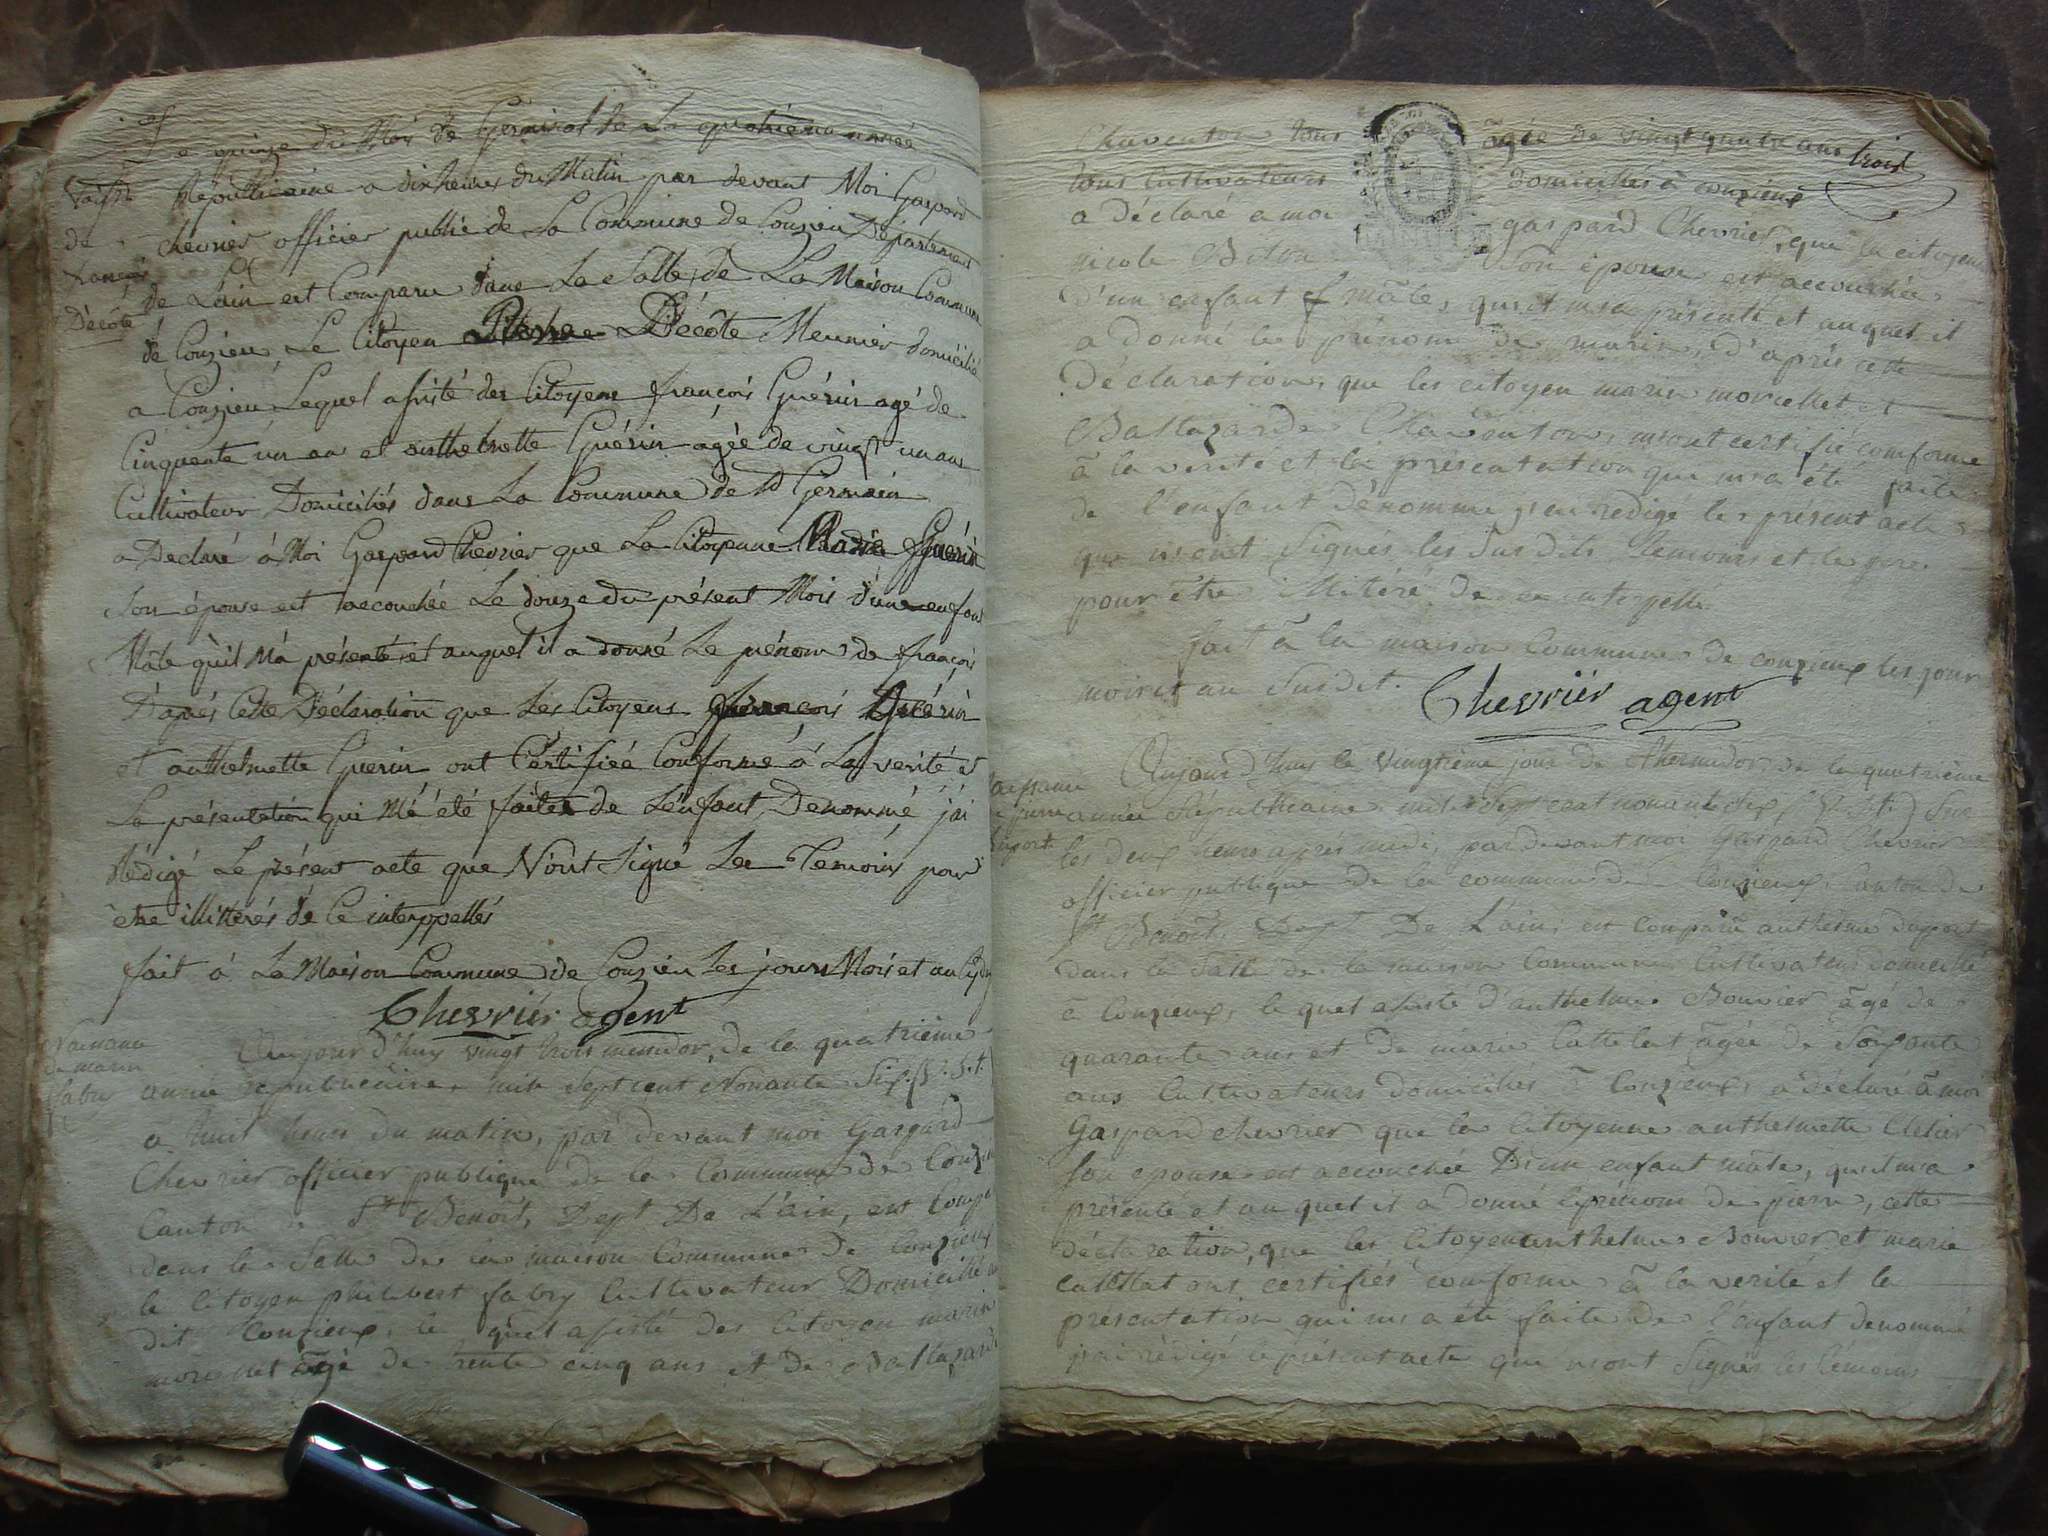 Le quinze du Mois de Germinal de La quatrième année
Républicaine a dix heures du Matin par devant Moi Gaspard
chevrier officier public de La Commune de Conzieu Département
de L'ain est Comparu dans La Salle de La Maison Commune
de Conzieu Le Citoyen Pierre Décôte Meunier domicilié
a Conzieu Lequel assisté des Citoyens françois Guérin agé de
Cinquante un an et anthelmette Guérin agée de vingt un ans
Cultivateur Domiciliés dans La Commune de St Germain
a Declaré à Moi Gaspard Chevrier que La Citoyenne Marie Guérin
Son épouse est accouchée Le douze du présent Mois d'une enfant
Mâle qu'il M'a présenté et auquel il a donné Le prénom de françois
D'aprés Cette Déclaration que Les Citoyens françois Guérin
et anthelmette Guerin ont Certifiée Conforme à La verité et
La présentation qui M'é été faites de L'enfant Denommé j'ai
Rédigé Le présent acte que N'ont Signé Les Temoins pour
etre illitterés de Ce interppellés
fait à La Maison Commune de Conzieu Les jours Mois et an
Chevrier agent
de
françois
Décôte
de marin
fabry
Aujourd'huy vingt trois messidor, de la quatrième
année republicaine, mile Sept cent Nonante Six
a huit heures du matin, par devant moi Gaspard
Chevrier officier publique de la Commune de
Canton de St Benoit, Dept De L'ain, est
dans la Salle de la maison Commune de Conzieux
le Citoyen philibert fabry Cultivateur Domicillié
dit Conzieux, le quel assisté des Citoyen marin
morellet âgé de trente cinq ans et de Ballazarde
Chaventon âgée de vingt quatre ans trois
tous Cultivateurs domiciliés à conzieux
a Déclaré a moi gaspard Chevrier, que la citoyenne
nicole Son épouse est accouchée
d'un enfant mâle, qu'il m'a présenté et auquel il
a donné le prénom de marin, d'après cette
Déclaration, que les citoyen marin morellet et
Ballazarde Chaventon, m'ont certifié conforme
à la verité et la présentation qui m'a été faite
de l'enfant dénommé j'en redige le présent acte
que n'ont Signés les Susdits Temoins et le pere
pour être illitéré De ce interpellé.
fait à la maison Commune de conzieux les jour
mois et an Susdit.
Chevrier agent
de pierre
Duport
Aujourd'hui le vingtième jour de thermidor, de la quatrième
année Républicaine, mile Sept cent nonante Six Sur
les deux heures après midi, par devant moi Gaspard Chevrier
officier publique de la commune de Conzieux, Canton de
St Benoit, Dept De L'ain, est comparu anthelme Duport
dans la Salle de la maison Commune Cultivateur domicillié
à Conzieux, le quel assisté d'anthelme Bouvier âgé de
quarante ans et de marie Cattelat âgée de Soixante
ans Cultivateurs domiciliés à Conzieux, a déclaré à moi
Gaspard chevrier que la Citoyenne anthelmette
Son epouse est accouchée D'un enfant mâle, qu'il m'a
présenté et auquel il a donné le prénom de pierre, cette
déclaration, que les Citoyens anthelme Bouvier et marie
Cattelat ont certifiés conforme à la verité et la
présentation qui m'a été faite de l'enfant denommé
j'ai rédigé le présent acte que n'ont Signés les témoins